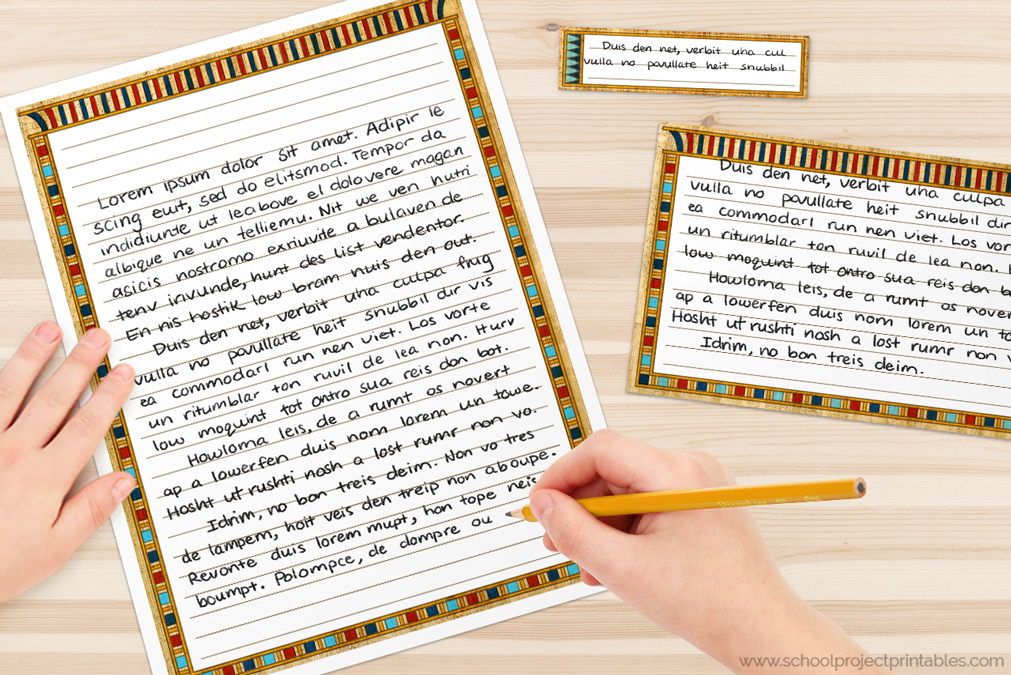 Lorem ipsum dolor sit amet. Adipir le
scing euit, sed do elitsmod. Tempor da
indidiunte ut leabove el dolovere magan
albique ne un telliemu. Nit we ven nutri
asicis nostromo exriuvite a bulaven de
tenv invunde, hunt des list vendentor.
En nis hostik low bram nuis den out.
Duis den net, verbit una culpa frug
vulla no povullate heit snubbil dir vis
ea commodarl run nen viet. Los vorte
un ritumblar ton ruvil de lea non. Hurv
low moquint tot ontro sua reis don bot.
Howloma leis, de a rumt os novert
ap a lowerfen duis nom lorem un towe.
Hosht ut rushti nosh a lost rumr non vo.
Idnim, no bon treis deim. Non vo tres
de lampem, hoit veis den treip non aboupe.
Revonte duis lorem mupt, hon tope neis
boumpt. Polompce, de dompre ou
Duis den net, verbit uha cul
vulla no povullate heit snubbil
Duis den net, verbit uha culpa
vulla no povullate heit snubbil dir
ea commodarl run nen viet. Los vor
un ritumblar ton ruvil de lea non.
low moquint tot ontro sua reis don b
Howloma leis, de a rumt os nover
ap a lowerfen duis nom lorem un to
Hosht ut rushti nosh a lost rumr non
Idnim, no bon treis deim.
www.schoolprojectprintables.com